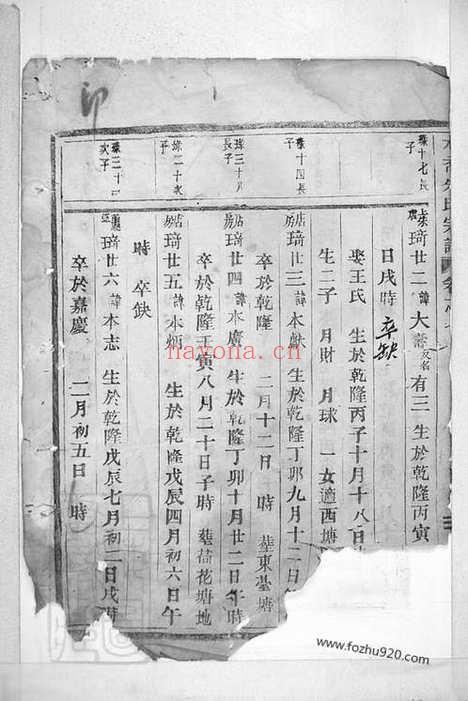 琦廿二諱大
又名
有三 生於乾隆丙寅
日戌時 卒缺
娶王氏 生於乾隆丙子十月十八日
生二子 月財 月球 一女適西塘
琦廿三諱本猷 生於乾隆丁卯九月十二日
卒於乾隆 二月十二日 時 葬東臺塘
琦廿四諱本廣 生於乾隆丁卯十月廿二日午時
卒於乾隆壬寅八月二十日子時 葬荷花塘地
琦廿五諱本炳 生於乾隆戊辰四月初六日午
時 卒缺
琦廿六諱本志 生於乾隆戊辰七月初二日戌時
卒於嘉慶 二月初五日 時
十七長子
十四長子
三十長子
二十次子
二十次子
印
nayona.cn
www.fozhu920.com